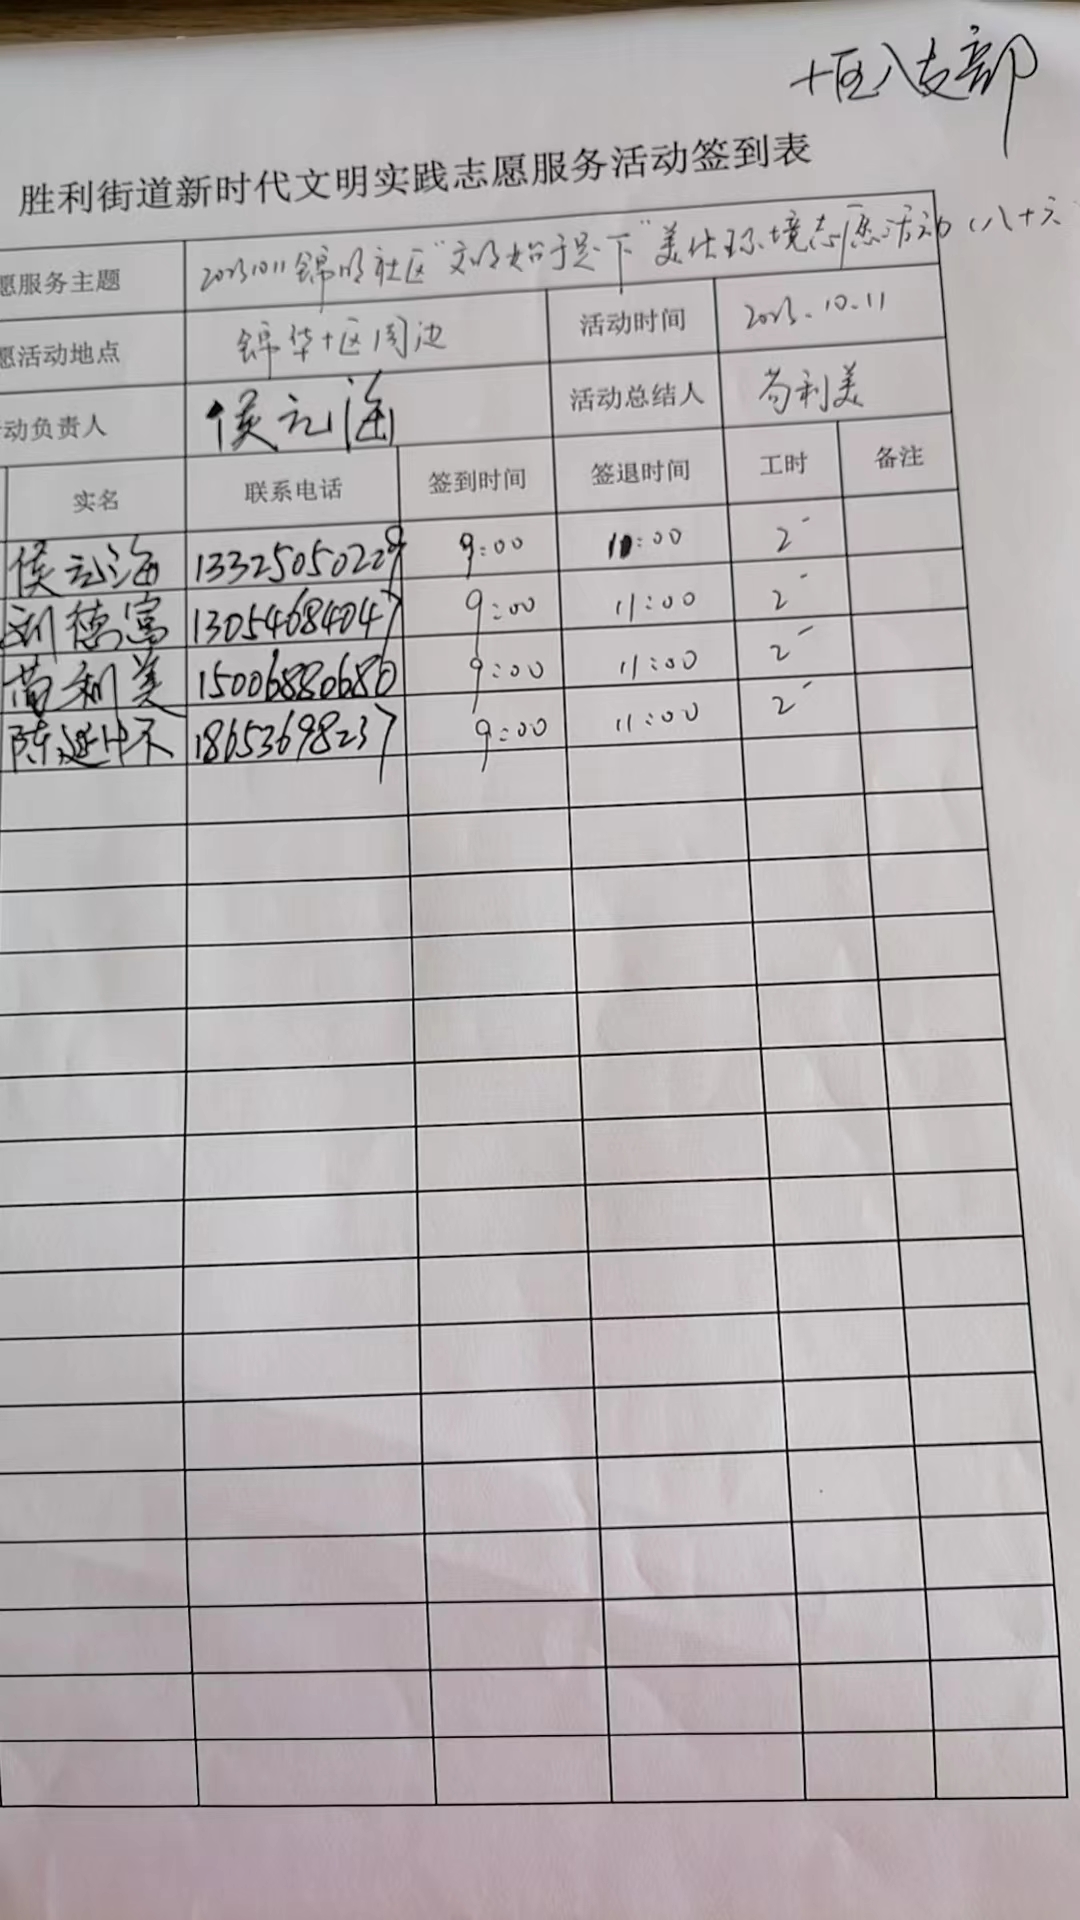 十区八支部
胜利街道新时代文明实践志愿服务活动签到表
愿服务主题 20231011锦明社区“文明始于足下”美化环境志愿活动(八十六
愿活动地点 锦华十区周边 活动时间 2023.10.11
动负责人 侯元海 活动总结人 苟利美
实名 联系电话 签到时间 签退时间 工时 备注
侯元海 13325050229 9:00 11:00 2
刘德富 13054684047 9:00 11:00 2
苟利美 15006880680 9:00 11:00 2
陈 18653698237 9:00 11:00 2